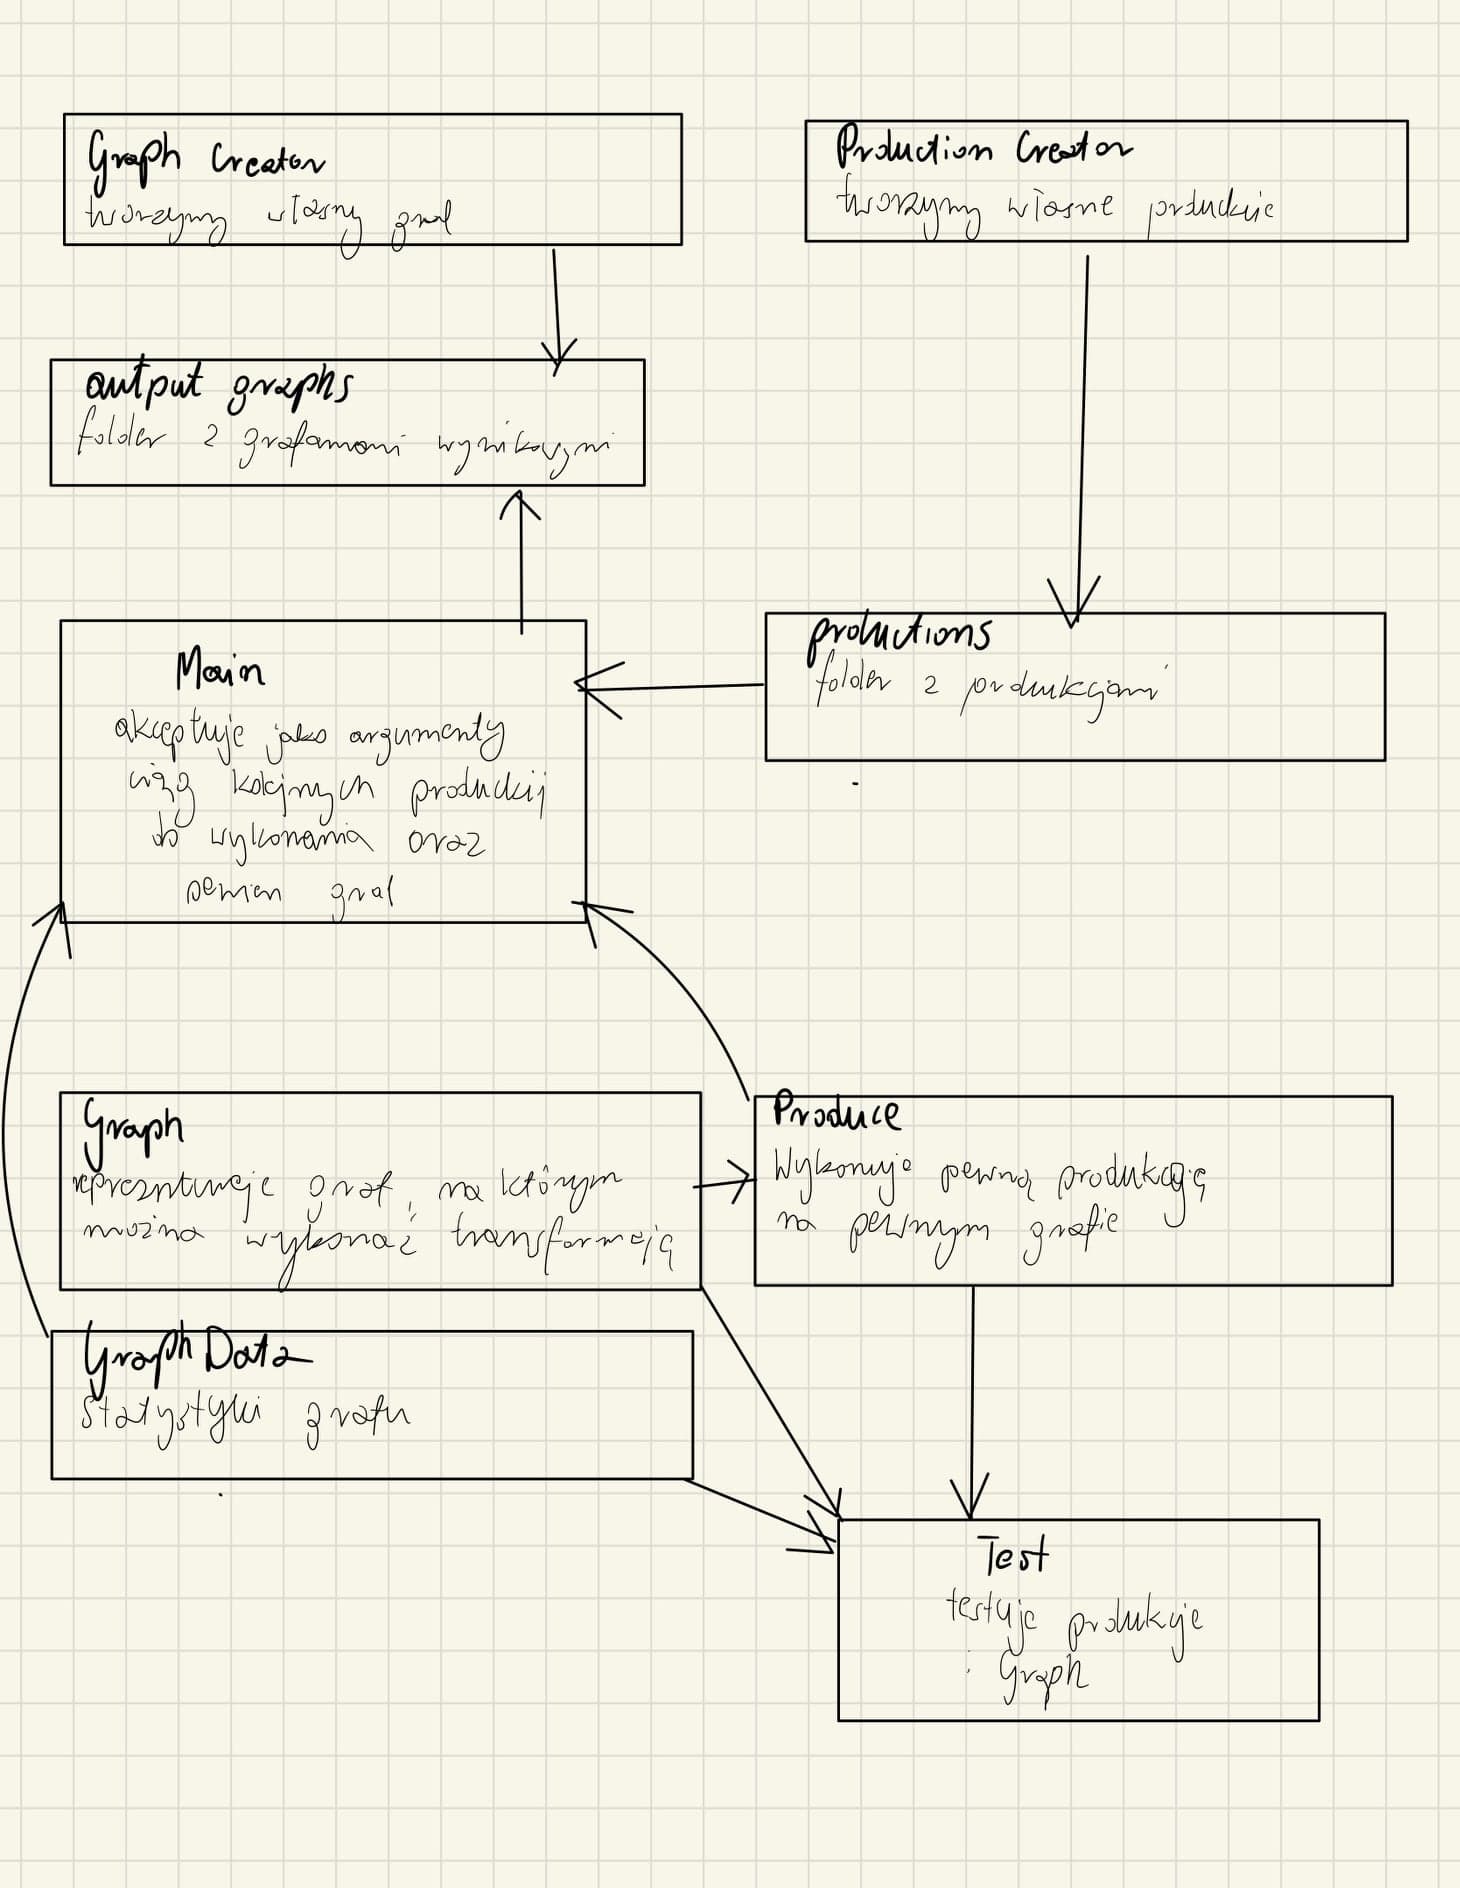 Graph Creator
tworzymy własny graf
Production Creator
tworzymy własne produckie
output graphs
folder z grafamami wynikowymi
Main
akceptuje jako argumenty
ciąg kolejnych produckij
do wykonania oraz
pewien graf
productions
folder z produkcjami
Graph
graf, na którym
można wykonać transformeję
Produce
Wykonuje pewną
na pewnym grafie
Graph Data
statystyki grafu
Test
testuje produkcje
i Graph